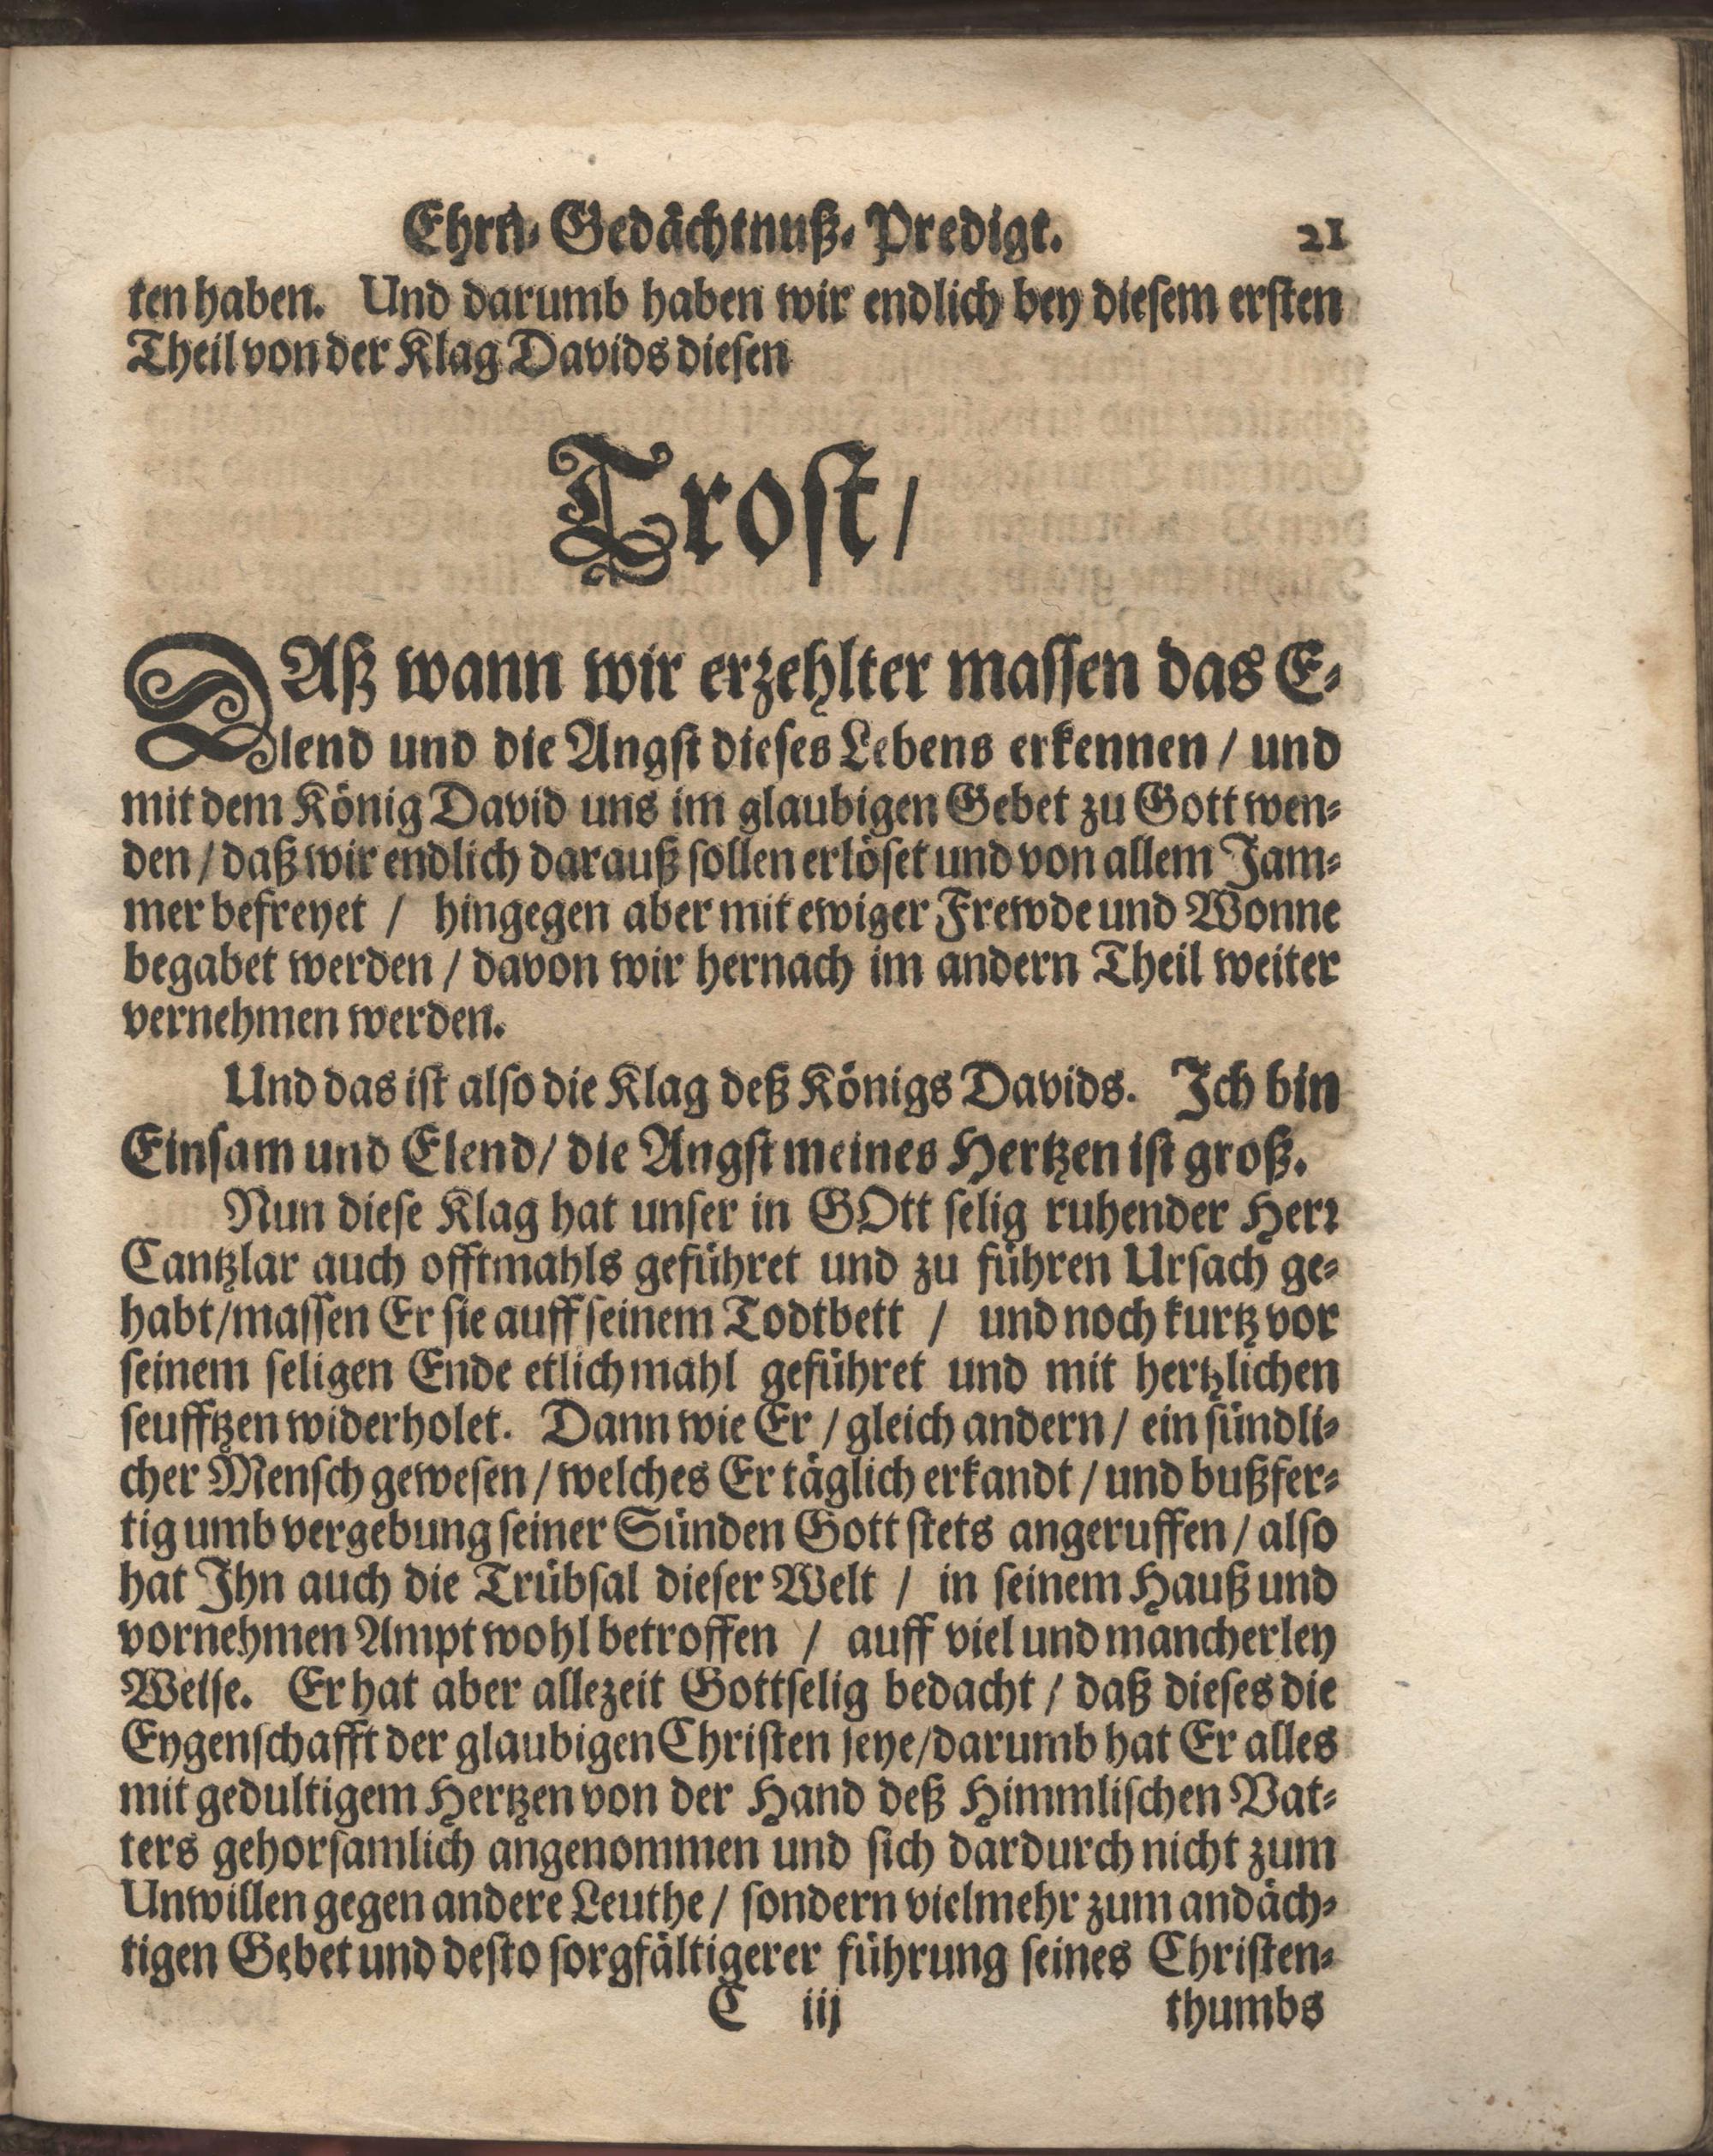 Ehrn-Gedächtnuß-Predigt. 21
ten haben. Und darumb haben wir endlich bey diesem ersten
Theil von der Klag Davids diesen
Trost/
DAß wann wir erzehlter massen das E-
lend und die Angst dieses Lebens erkennen / und
mit dem König David uns im glaubigen Gebet zu Gott wen-
den / daß wir endlich darauß sollen erlöset und von allem Jam-
mer befreyet / hingegen aber mit ewiger Frewde und Wonne
begabet werden / davon wir hernach im andern Theil weiter
vernehmen werden.
Und das ist also die Klag deß Königs Davids. Ich bin
Einsam und Elend/ die Angst meines Hertzen ist groß.
Nun diese Klag hat unser in GOtt selig ruhender Herr
Cantzlar auch offtmahls geführet und zu führen Ursach ge-
habt/massen Er sie auff seinem Todtbett / und noch kurtz vor
seinem seligen Ende etlichmahl geführet und mit hertzlichen
seufftzen widerholet. Dann wie Er / gleich andern / ein sündli-
cher Mensch gewesen / welches Er täglich erkandt / und bußfer-
tig umb vergebung seiner Sünden Gott stets angeruffen / also
hat Ihn auch die Trübsal dieser Welt / in seinem Hauß und
vornehmen Ampt wohl betroffen / auff viel und mancherley
Weise. Er hat aber allezeit Gottselig bedacht / daß dieses die
Eygenschafft der glaubigen Christen seye/darumb hat Er alles
mit gedultigem Hertzen von der Hand deß Himmlischen Vat-
ters gehorsamlich angenommen und sich dardurch nicht zum
Unwillen gegen andere Leuthe / sondern vielmehr zum andäch-
tigen Gebet und desto sorgfältigerer führung seines Christen-
C iij thumbs